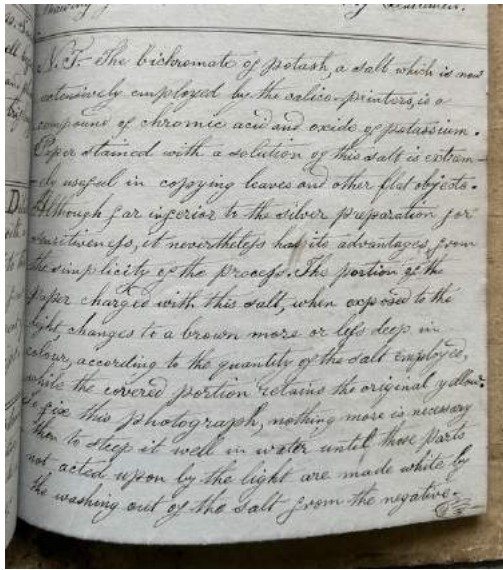 N.T. The bichromate of potash, a salt which is now
extensively employed by the calico-printers, is a
compound of chromic acid and oxide of potassium.
Paper stained with a solution of this salt is extrem-
ely useful in copying leaves and other flat objects.
Although far inferior to the silver preparation for
sensitiveness, it nevertheless has its advantages, from
the simplicity of the process. The portion of the
paper charged with this salt, when exposed to the
light, changes to a brown more or less deep in
colour, according to the quantity of the salt employed,
while the covered portion retains the original yellow.
To fix this photograph, nothing more is necessary
then to steep it well in water until those parts
not acted upon by the light are made white by
the washing out of the salt from the negative.